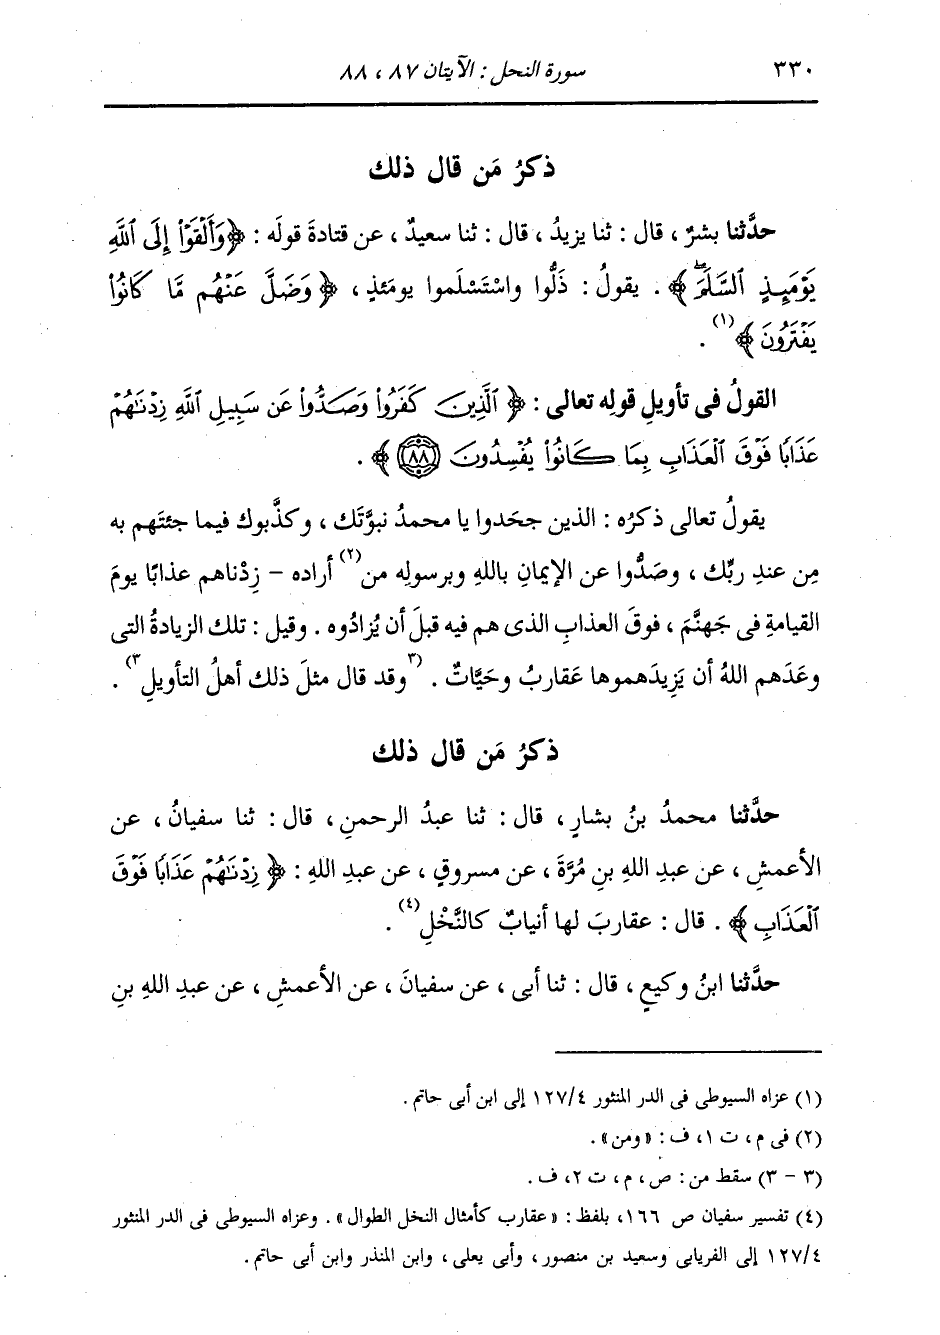 ٣٣٠ سورة النحل : الآيتان ٨٧ ، ٨٨
ذكرُ مَن قال ذلك
حدَّثنا بشرٌ ، قال : ثنا يزيدُ ، قال : ثنا سعيدٌ ، عن قتادةَ قولَه : ﴿وَأَلْقَوْا۟ إِلَى ٱللَّهِ
يَوْمَئِذٍ ٱلسَّلَمَۖ﴾ . يقولُ : ذَلُّوا واسْتَسْلَموا يومَئذٍ ، ﴿وَضَلَّ عَنْهُم مَّا كَانُوا۟
يَفْتَرُونَ﴾(١) .
القولُ فى تأويلِ قولِه تعالى : ﴿ٱلَّذِينَ كَفَرُوا۟ وَصَدُّوا۟ عَن سَبِيلِ ٱللَّهِ زِدْنَٰهُمْ
عَذَابًا فَوْقَ ٱلْعَذَابِ بِمَا كَانُوا۟ يُفْسِدُونَ ٨٨﴾ .
يقولُ تعالى ذكرُه : الذين جحَدوا يا محمدُ نبوَّتَك ، وكذَّبوك فيما جئتَهم به
مِن عندِ ربِّك ، وصَدُّوا عن الإيمانِ باللهِ وبرسولِه من(٢) أراده - زِدْناهم عذابًا يومَ
القيامةِ فى جَهنَّمَ ، فوقَ العذابِ الذى هم فيه قبلَ أن يُزادُوه . وقيل : تلك الزيادةُ التى
وعَدَهم اللهُ أن يَزِيدَهموها عَقاربُ وحَيَّاتٌ . (٣وقد قال مثلَ ذلك أهلُ التأويلِ٣) .
ذكرُ مَن قال ذلك
حدَّثنا محمدُ بنُ بشارٍ ، قال : ثنا عبدُ الرحمنِ ، قال : ثنا سفيانُ ، عن
الأعمشِ ، عن عبدِ اللهِ بنِ مُرَّةَ ، عن مسروقٍ ، عن عبدِ اللهِ : ﴿زِدْنَٰهُمْ عَذَابًا فَوْقَ
ٱلْعَذَابِ﴾ . قال : عقاربَ لها أنيابٌ كالنَّخْلِ(٤) .
حدَّثنا ابنُ وكيعٍ ، قال : ثنا أبى ، عن سفيانَ ، عن الأعمشِ ، عن عبدِ اللهِ بنِ
(١) عزاه السيوطى فى الدر المنثور ١٢٧/٤ إلى ابن أبى حاتم .
(٢) فى م ، ت ١ ، ف : « ومن » .
(٣ - ٣) سقط من : ص ، م ، ت ٢ ، ف .
(٤) تفسير سفيان ص ١٦٦ ، بلفظ : « عقارب كأمثال النخل الطوال » . وعزاه السيوطى فى الدر المنثور
١٢٧/٤ إلى الفريابى وسعيد بن منصور ، وأبى يعلى ، وابن المنذر وابن أبى حاتم .